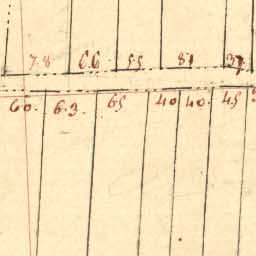 78 66 55 81 37
60. 63 65 40 40. 45